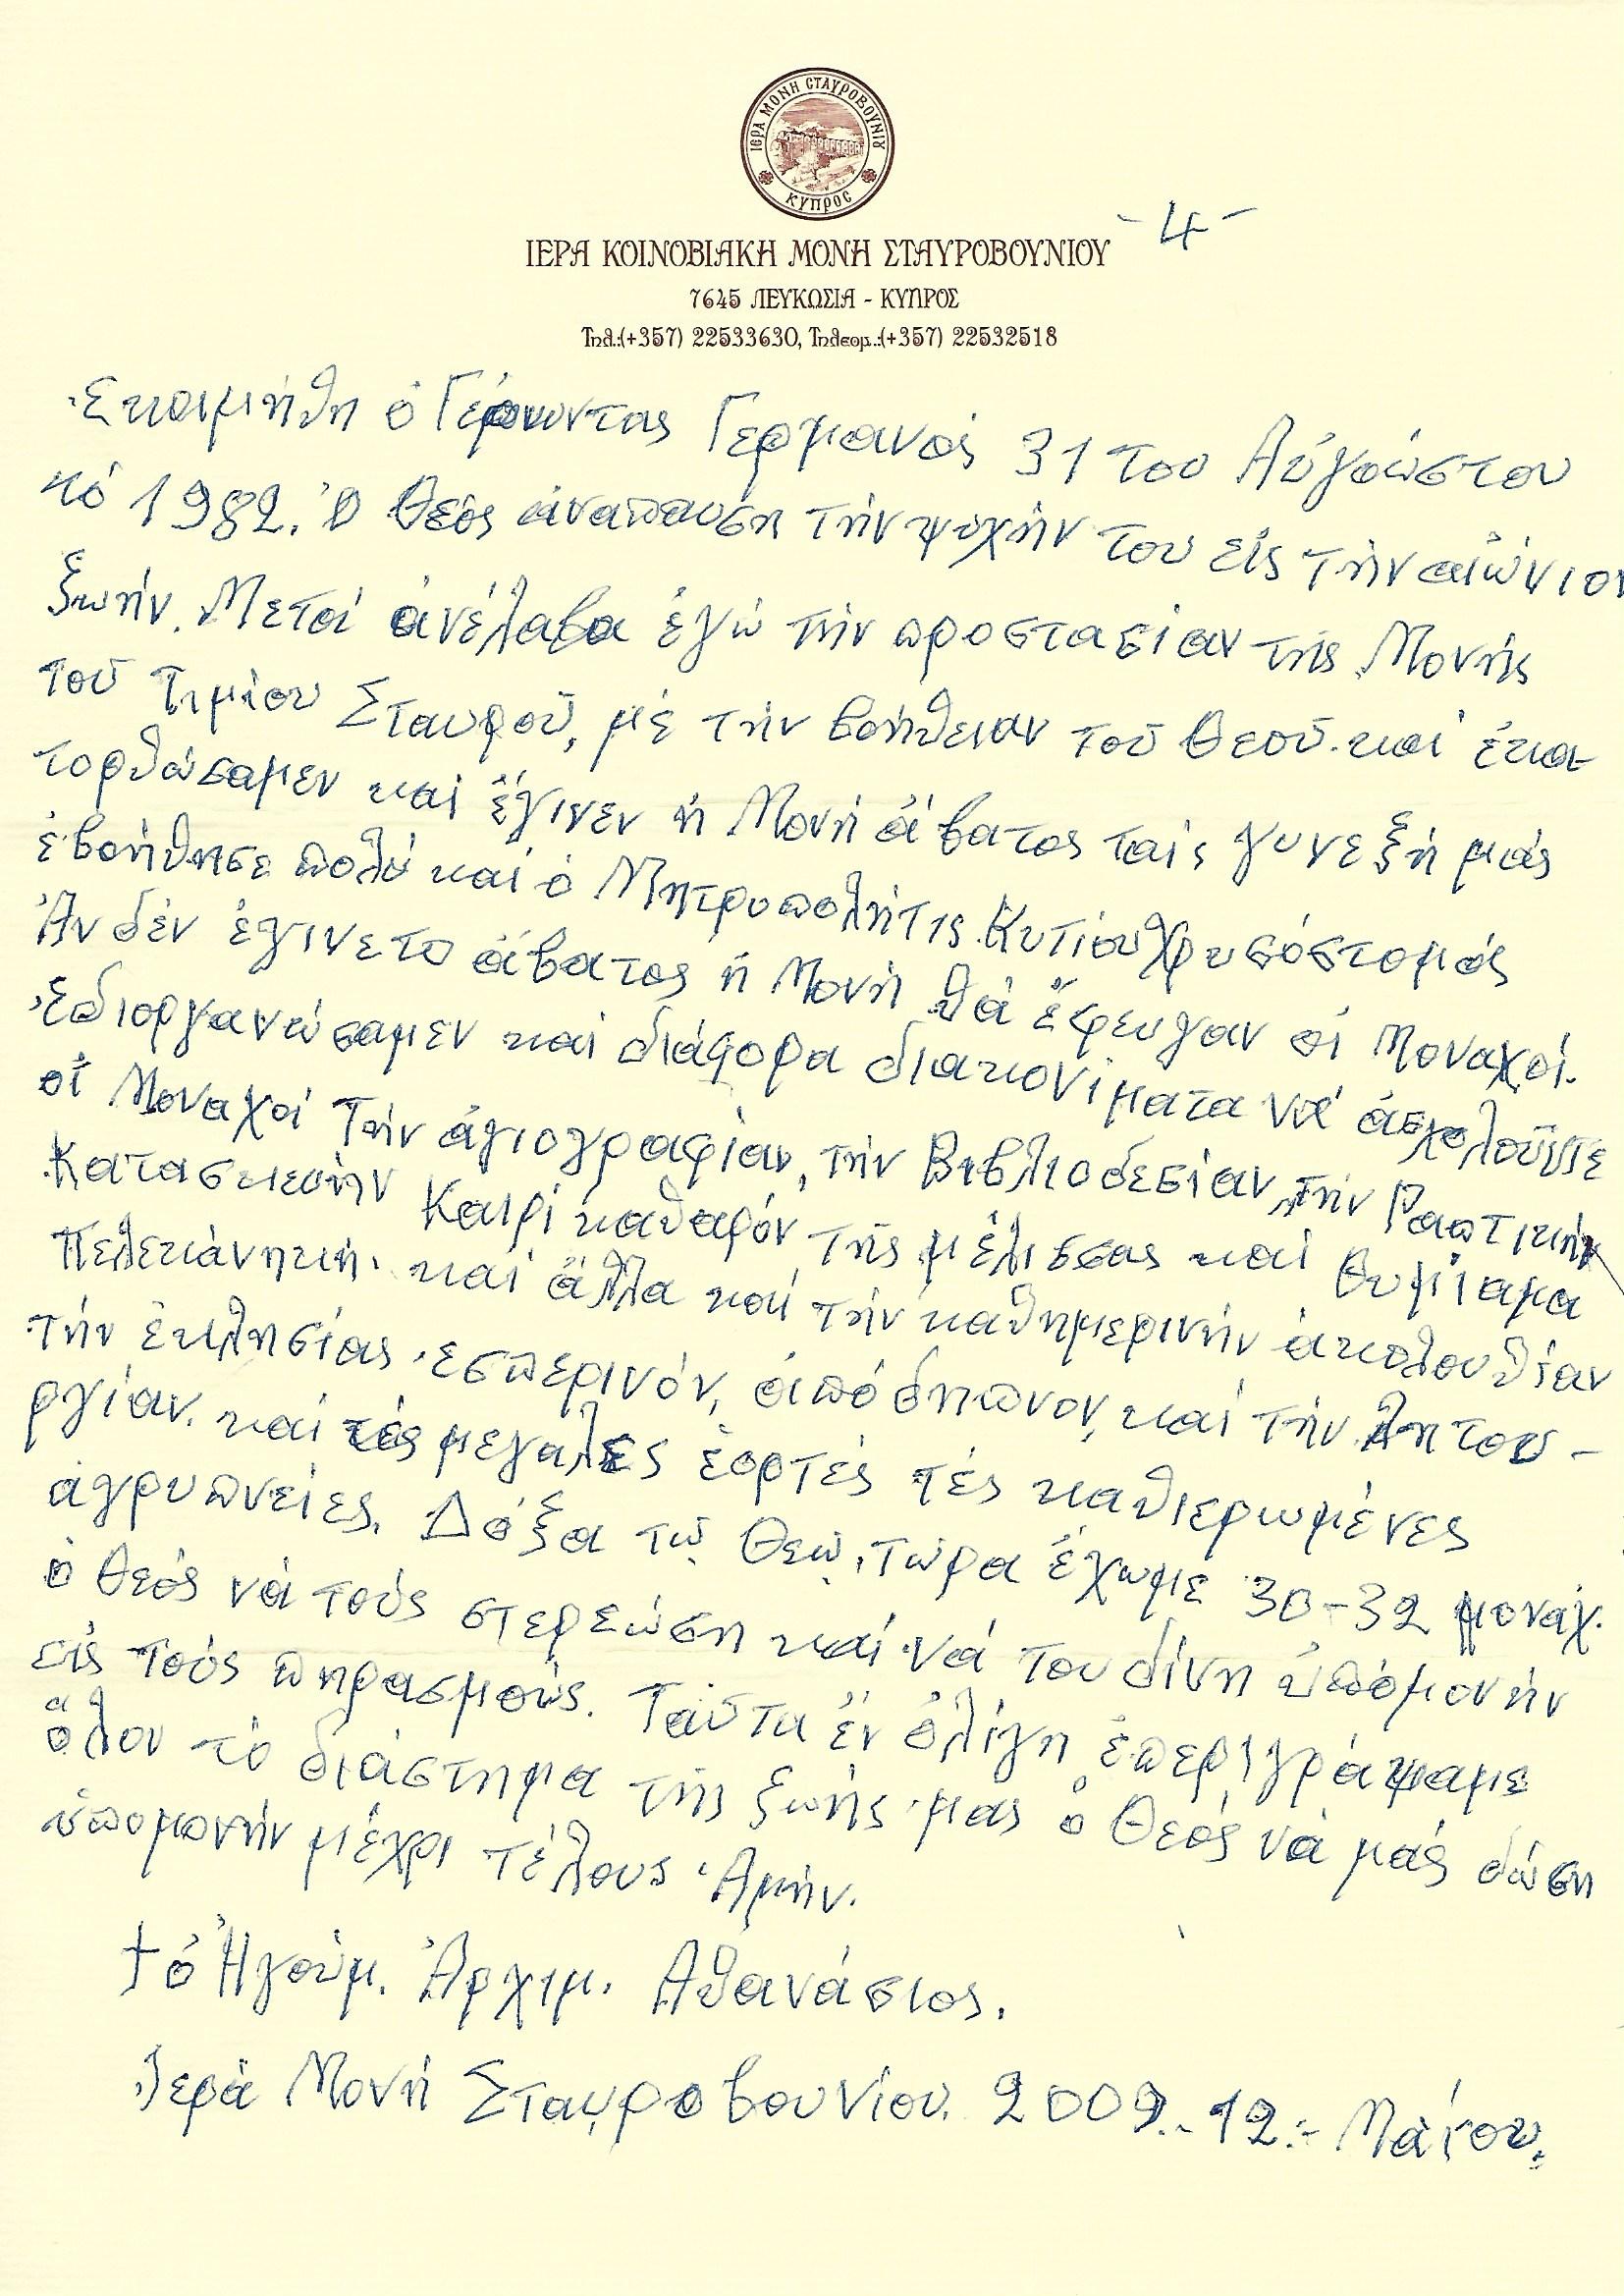 ΙΕΡΑ ΜΟΝΗ ΣΤΑΥΡΟΒΟΥΝΙȢ
ΚΥΠΡΟΣ
-4-
ΙΕΡΑ ΚΟΙΝΟΒΙΑΚΗ ΜΟΝΗ ΣΤΑΥΡΟΒΟΥΝΙΟΥ
7645 ΛΕΥΚΩΣΙΑ - ΚΥΠΡΟΣ
Τηλ.:(+357) 22533630, Τηλεομ.:(+357) 22532518
Ἐκοιμήθη ὁ Γέροντας Γερμανός 31 του Αὐγούστου
τό 1982. Ὁ Θεός ἀναπαυση τήν ψυχήν του εἰς τήν αἰώνιον
ζωήν. Μετά ἀνέλαβα ἐγώ τήν προστασίαν τῆς Μονῆς
τοῦ Τιμίου Σταυροῦ, μέ τήν βοήθειαν τοῦ Θεοῦ. καί ἐκα-
τορθώσαμεν καί ἔγινεν ἡ Μονή ἄβατος ταῖς γυνεξή μᾶς
ἐβοήθησε πολύ καί ὁ Μητροπολήτις Κυτίου Χρυσόστομός
Ἀν δέν ἐγινετο ἄβατος ἡ Μονή θά ἔφευγαν οἱ Μοναχοί.
Ἐδιοργανώσαμεν καί διάφορα διακονίματα νά ἀσχολοῦντε
οἱ Μοναχοί Τήν ἁγιογραφίαν, τήν Βιβλιοδεσίαν, τήν Ραπτικήν
Κατασκευήν Καιρί καθαρόν τῆς μέλισσας καί θυμίαμα
Πελεκάνητκή. καί ἄλλα καί τήν καθημερινήν ἀκολουθίαν
τήν ἐκλησίας ἑσπερινόν, ἀπόδηπνον, καί τήν λητου-
ργίαν. καί τές μεγαλες ἑορτές τές καθιερωμένες
ἀγρυπνείες. Δόξα τῷ Θεῷ, τώρα ἔχωμε 30-32 μοναχ.
ὁ Θεός νά τούς στερεώση καί νά του δίνη ὑπόμονήν
εἰς τούς πηρασμούς. Ταῦτα ἐν ὀλίγη ἐπεριγράψαμε
ὅλον τό διάστημα τῆς ζωῆς μας ὁ Θεός νά μᾶς δώση
ὑπομονήν μέχρι τέλους Ἀμήν.
† ὁ Ἡγούμ. Ἀρχιμ. Ἀθανάσιος.
Ἱερά Μονή Σταυροβουνίου. 2009.-12.- Μαΐου.